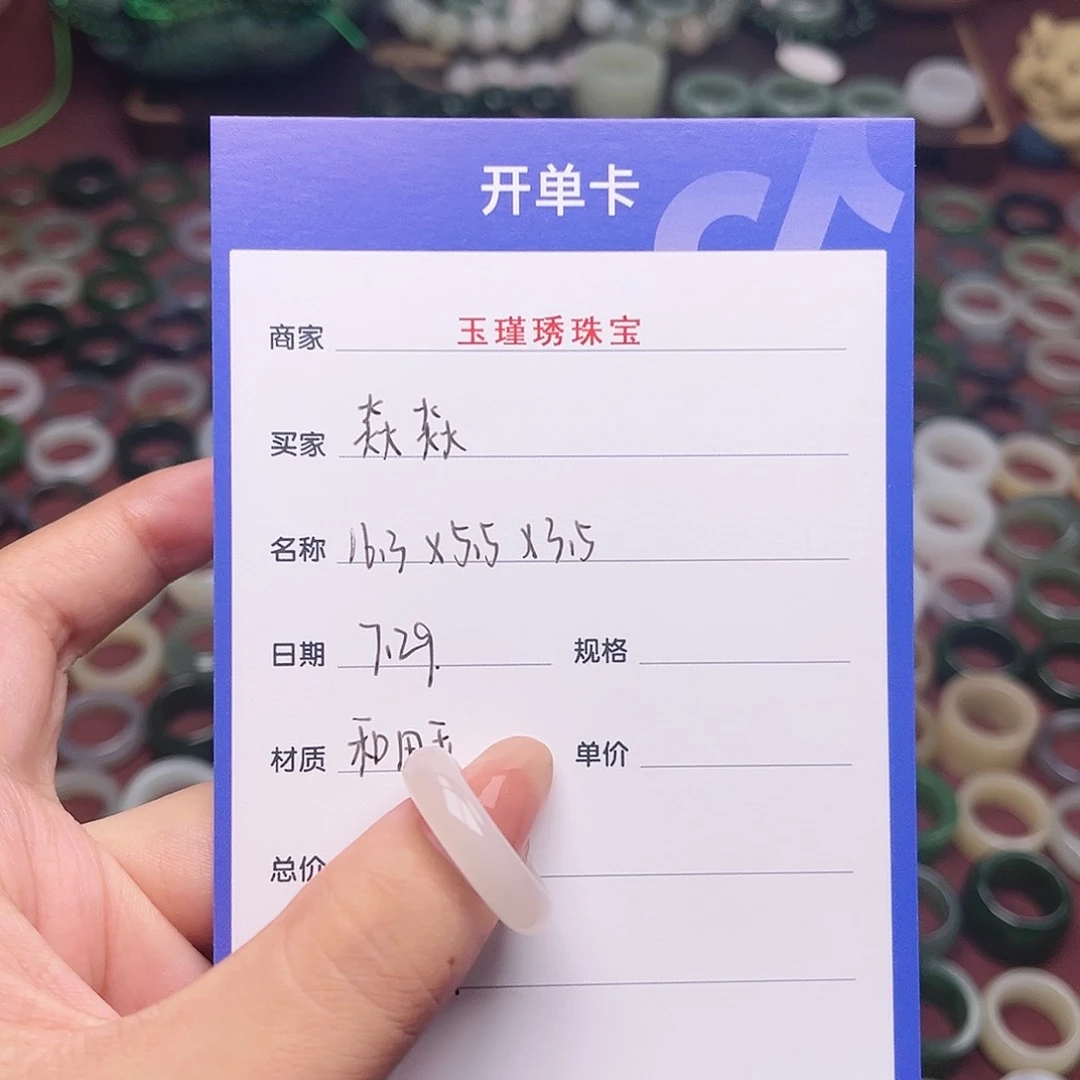 开单卡
商家 玉瑾琇珠宝
买家 猋猋
名称 16.3 x 5.5 x 3.5
日期 7.29. 规格
材质 和田玉 单价
总价